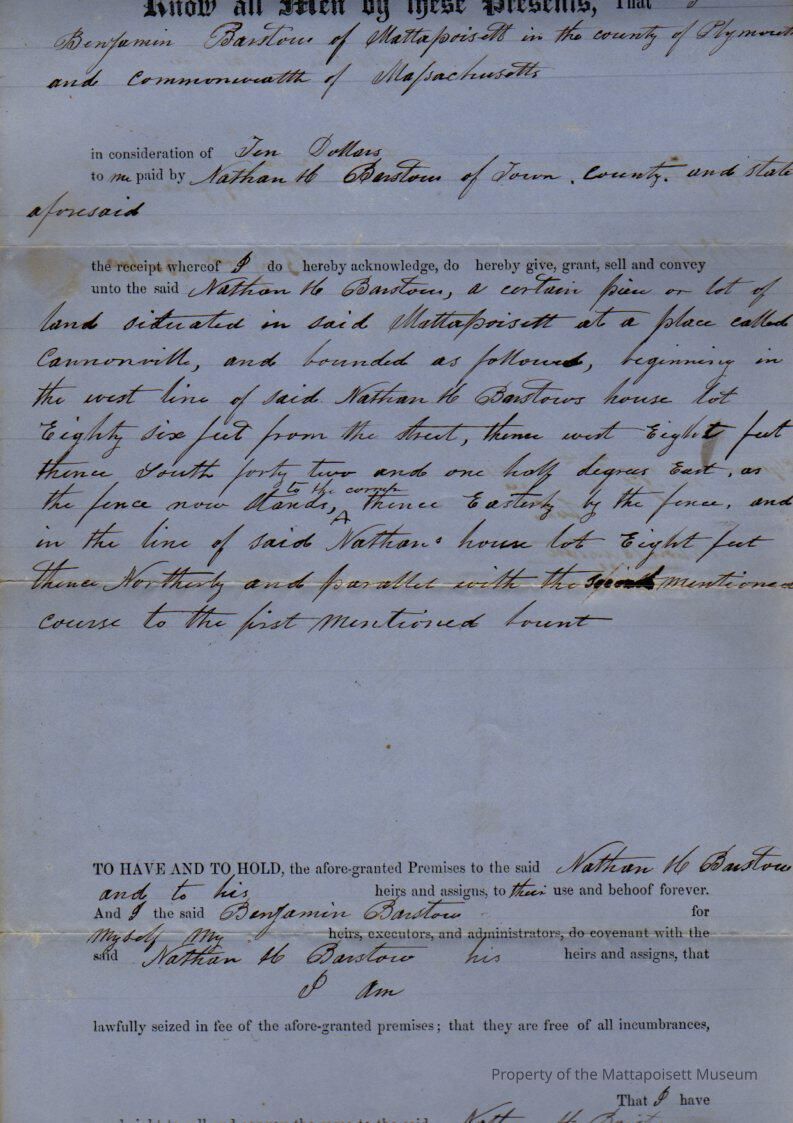 Know all Men by these Presents, That I
Benjamin Barstow of Mattapoisett in the county of Plymouth
and Commonwealth of Massachusetts
in consideration of Ten Dollars
to me paid by Nathan H Barstow of Town, County, and state
aforesaid
the receipt whereof I do hereby acknowledge, do hereby give, grant, sell and convey
unto the said Nathan H Barstow, a certain piece or lot of
land situated in said Mattapoisett at a place called
Cannonville, and bounded as followed, beginning in
the west line of said Nathan H Barstows house lot
Eighty six feet from the street, thence west Eight feet
thence South forty two and one half degrees East, as
to the corner
the fence now stands, thence Easterly by the fence, and
in the line of said Nathans house lot Eight feet
thence Northerly and parallel with the mentioned
course to the first mentioned bount
TO HAVE AND TO HOLD, the afore-granted Premises to the said Nathan H Barstow
and to his heirs and assigns, to their use and behoof forever.
And I the said Benjamin Barstow for
myself my heirs, executors, and administrators, do covenant with the
said Nathan H Barstow his heirs and assigns, that
I am
lawfully seized in fee of the afore-granted premises; that they are free of all incumbrances,
Property of the Mattapoisett Museum
That I have